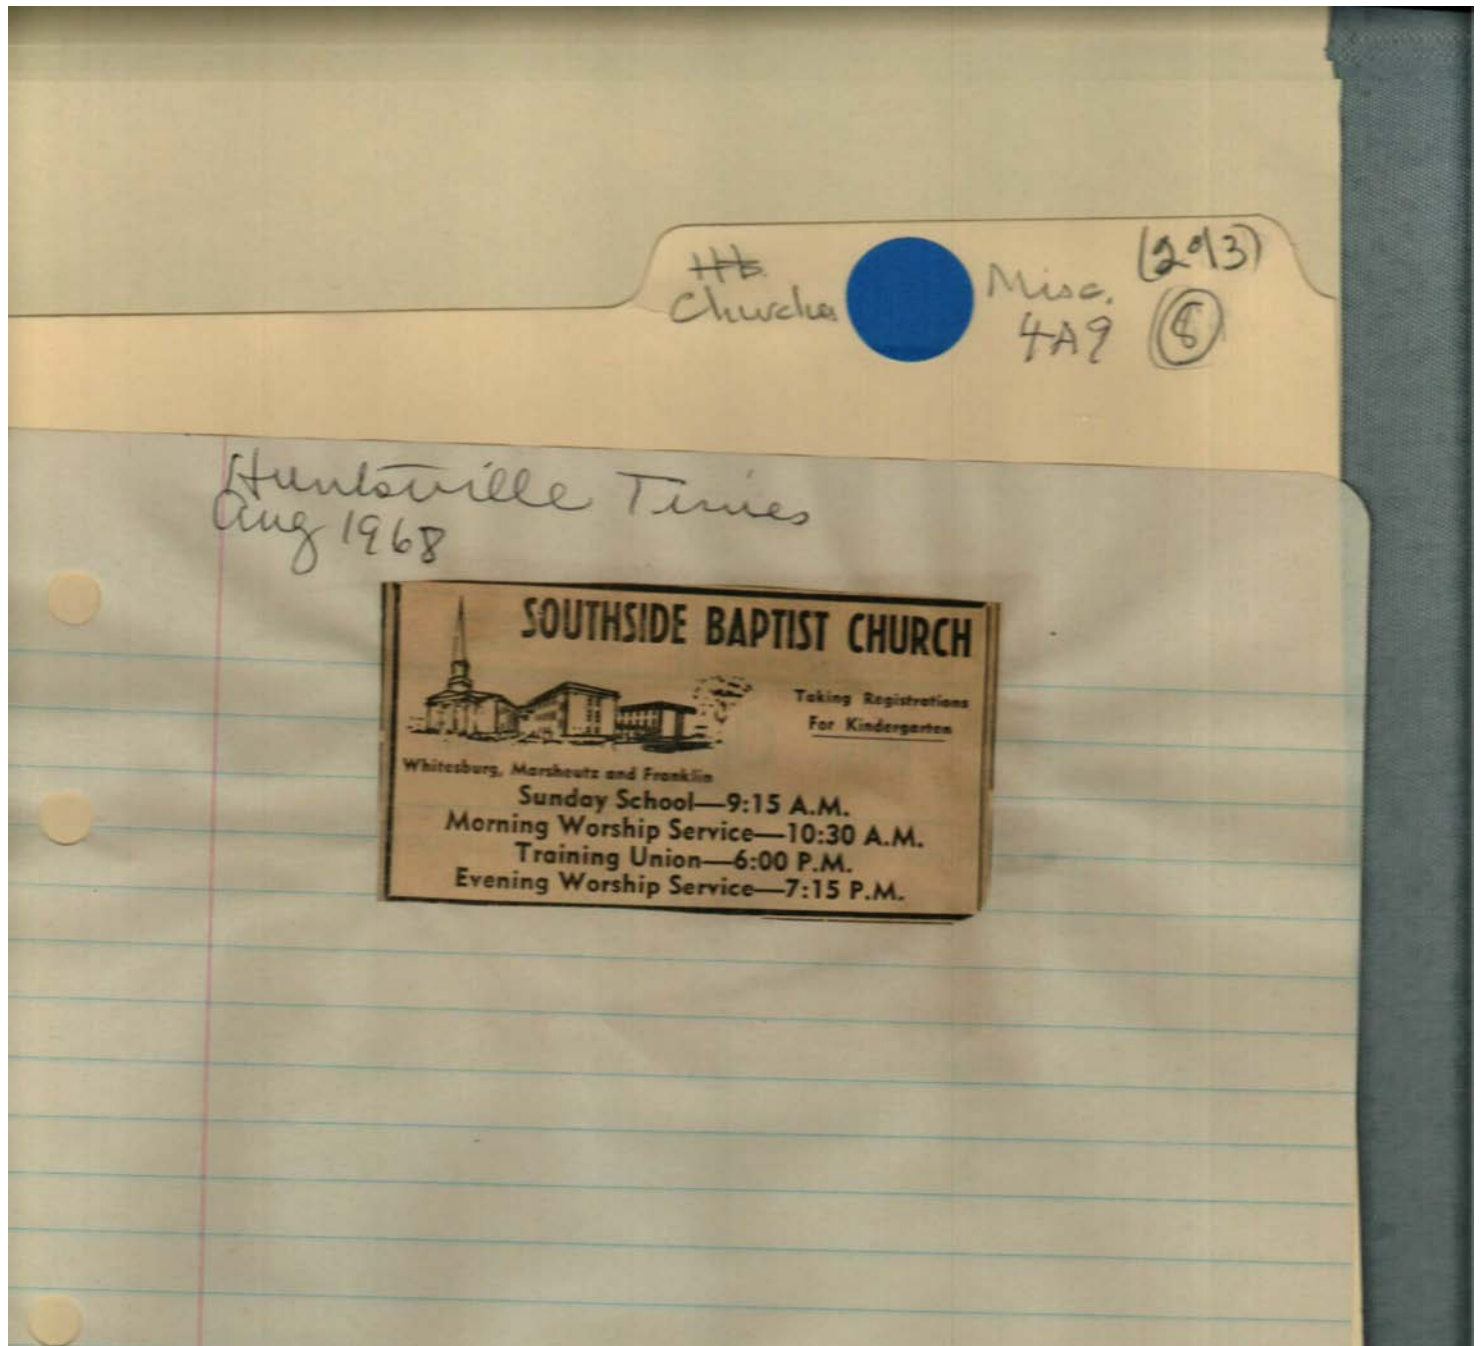 (293)
Churches Misc.
4A9 8
Huntsville Times
Aug 1968
SOUTHSIDE BAPTIST CHURCH
Taking Registrations
For Kindergarten
Whitesburg, Marsheutz and Franklin
Sunday School—9:15 A.M.
Morning Worship Service—10:30 A.M.
Training Union—6:00 P.M.
Evening Worship Service—7:15 P.M.